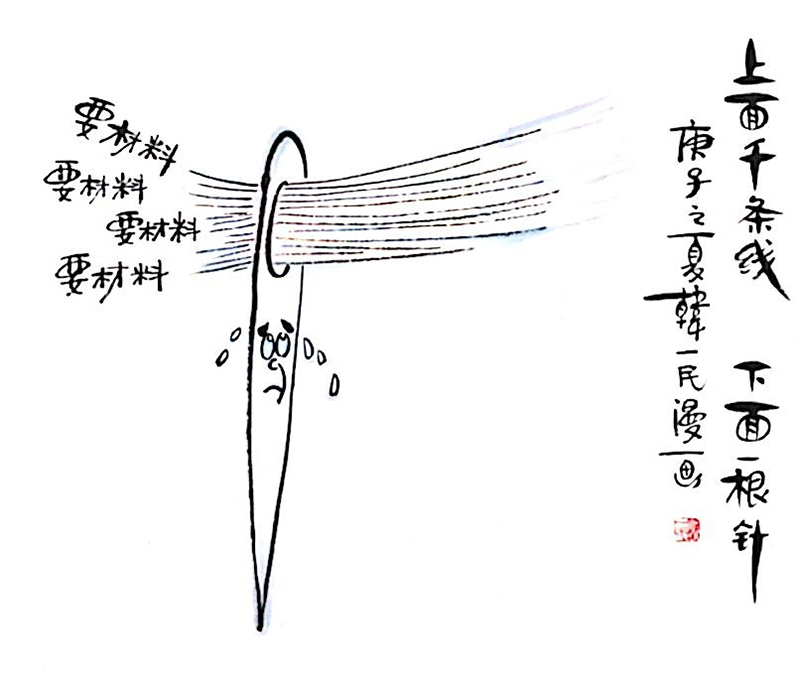 上面千条线 下面一根针
庚子之夏韩一民漫画
要材料
要材料
要材料
要材料